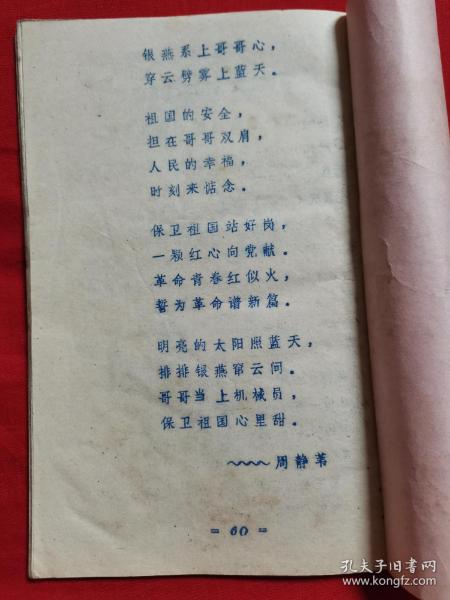 银燕系上哥哥心，
穿云劈雾上蓝天。
祖国的安全，
担在哥哥双肩，
人民的幸福，
时刻来惦念。
保卫祖国站好岗，
一颗红心向党献。
革命青春红似火，
誓为革命谱新篇。
明亮的太阳照蓝天，
排排银燕窜云间。
哥哥当上机械员，
保卫祖国心里甜。
~~~~周静苇
= 60 =
孔夫子旧书网
www.kongfz.com